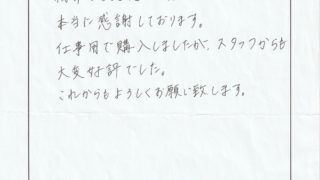 本当に感謝しております。
仕事用で購入しましたが、スタッフからも
大変好評でした。
これからもよろしくお願い致します。